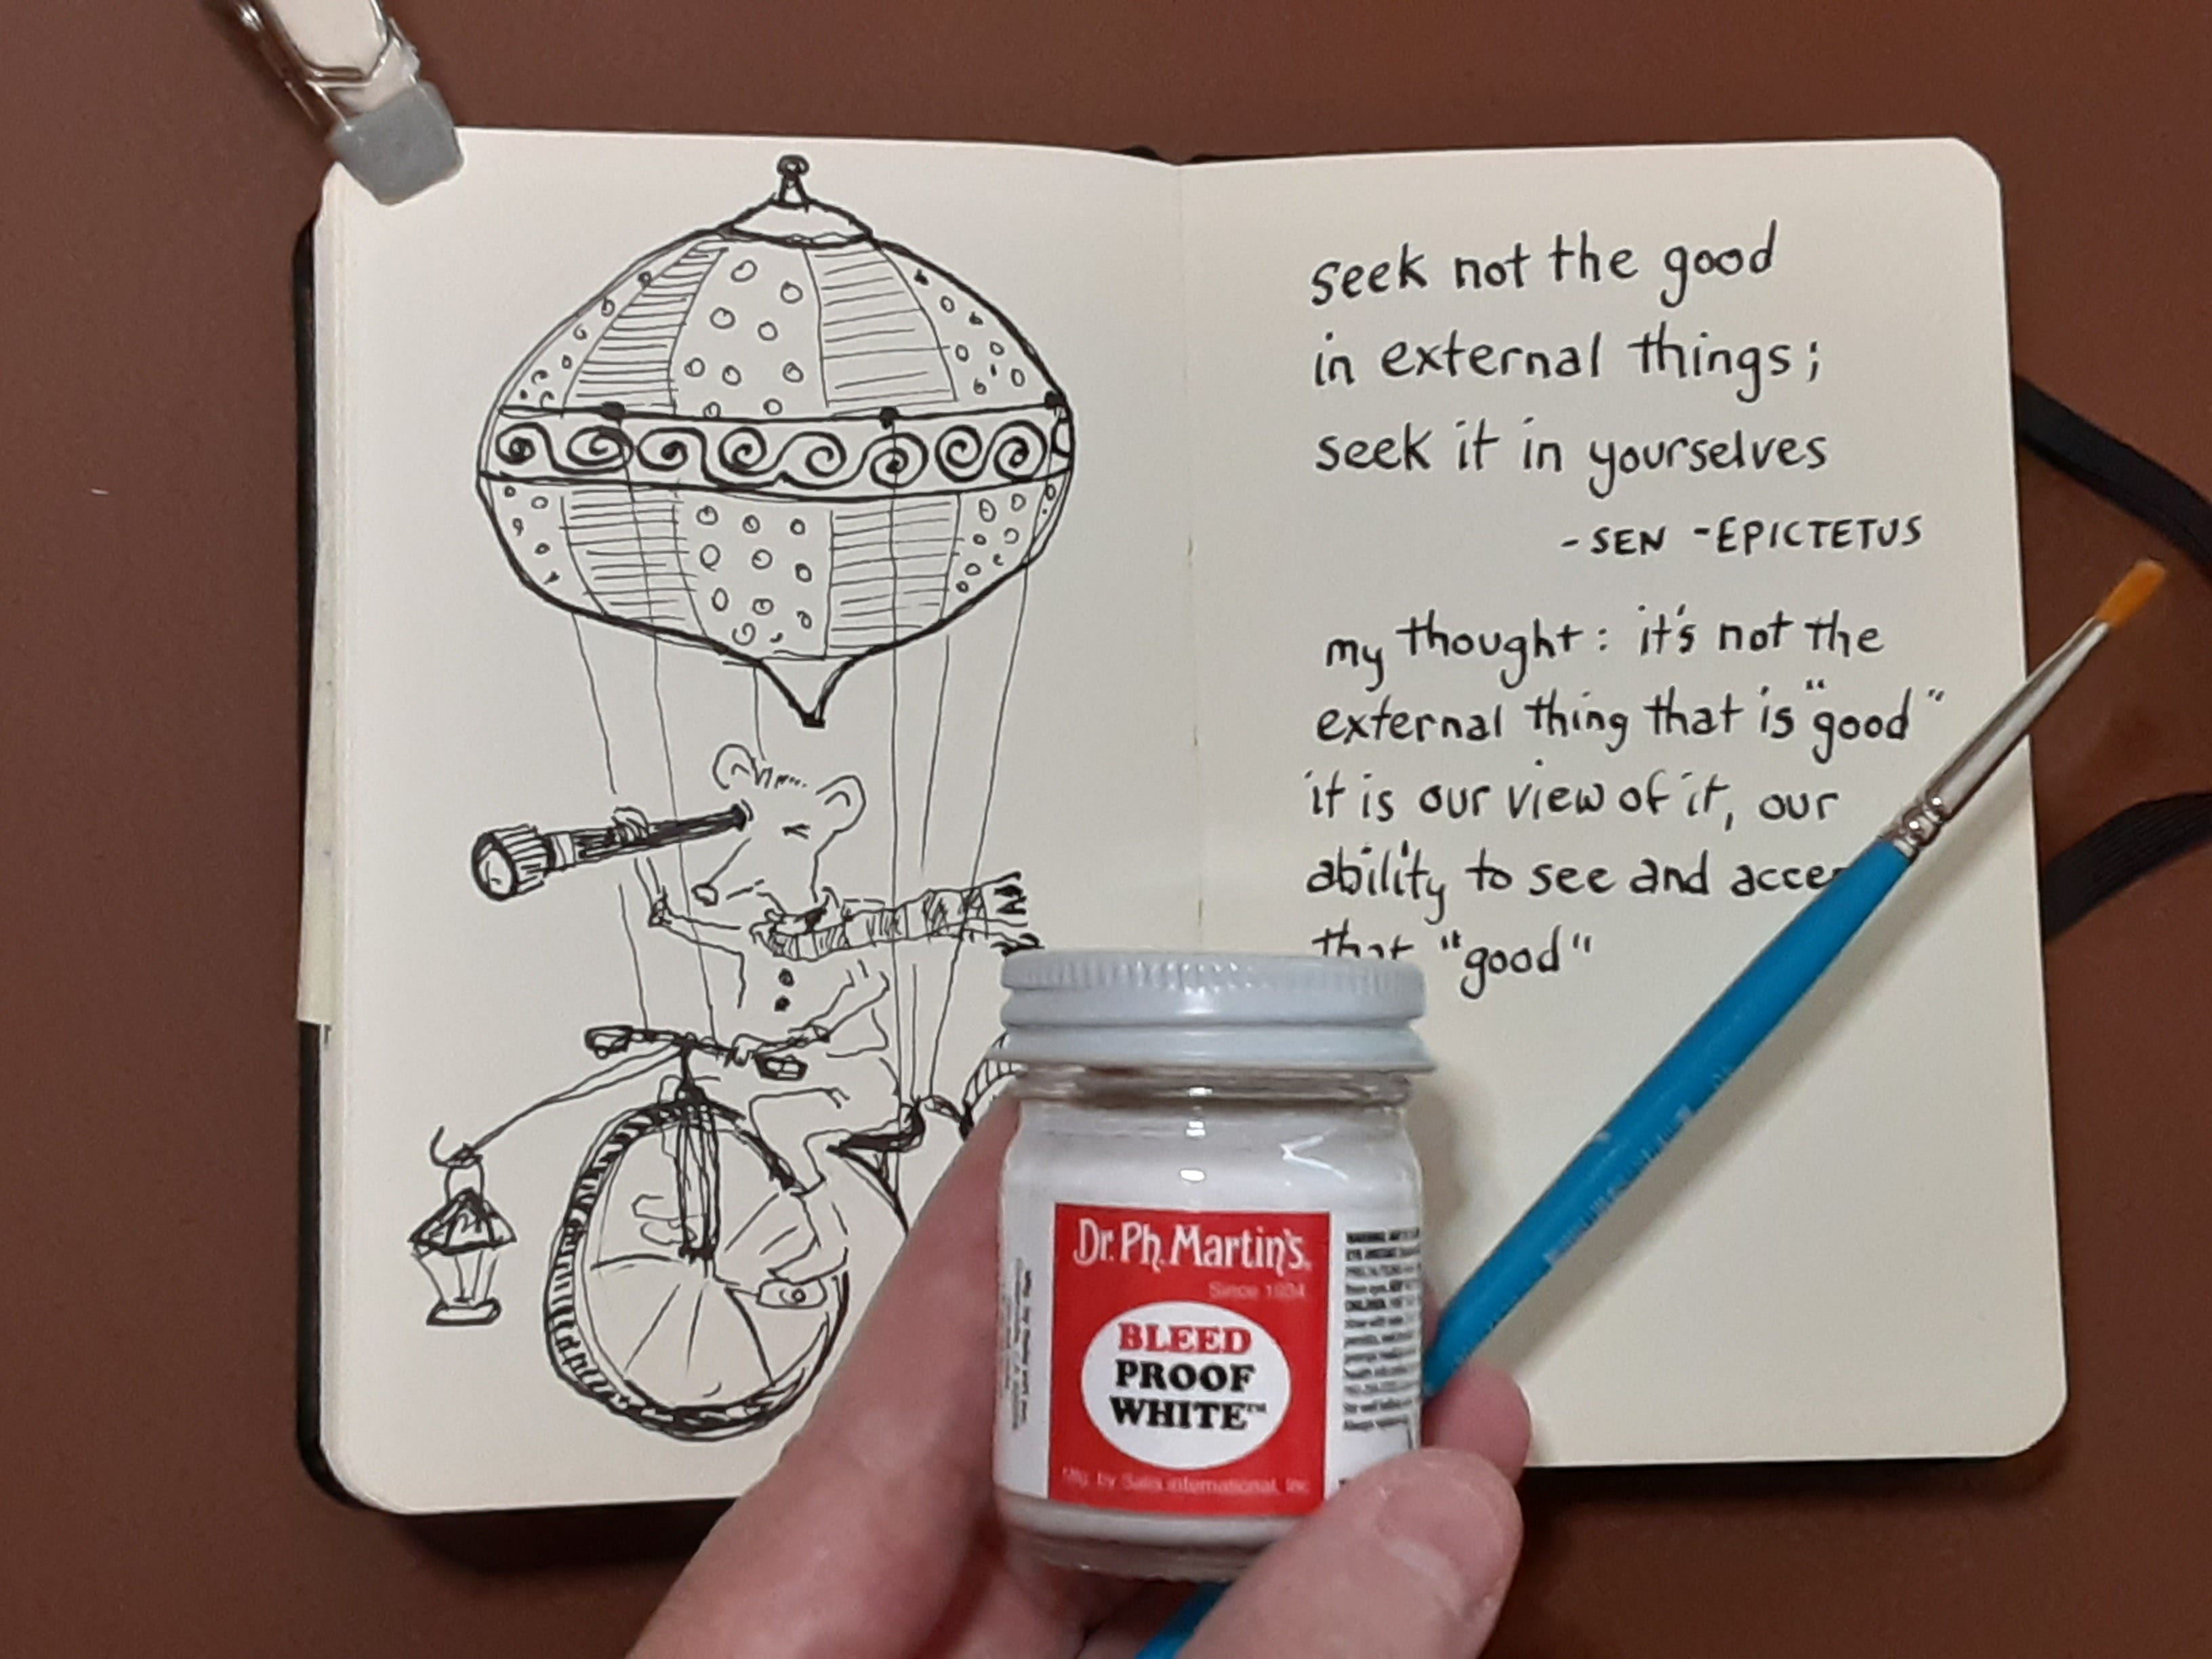 seek not the good
in external things;
seek it in yourselves
- SEN - EPICTETUS
my thought: it's not the
external thing that is "good"
it is our view of it, our
ability to see and
that "good"
Dr. Ph. Martin's
Since 1934
BLEED
PROOF
WHITE™
Mfg. by Salis International, Inc